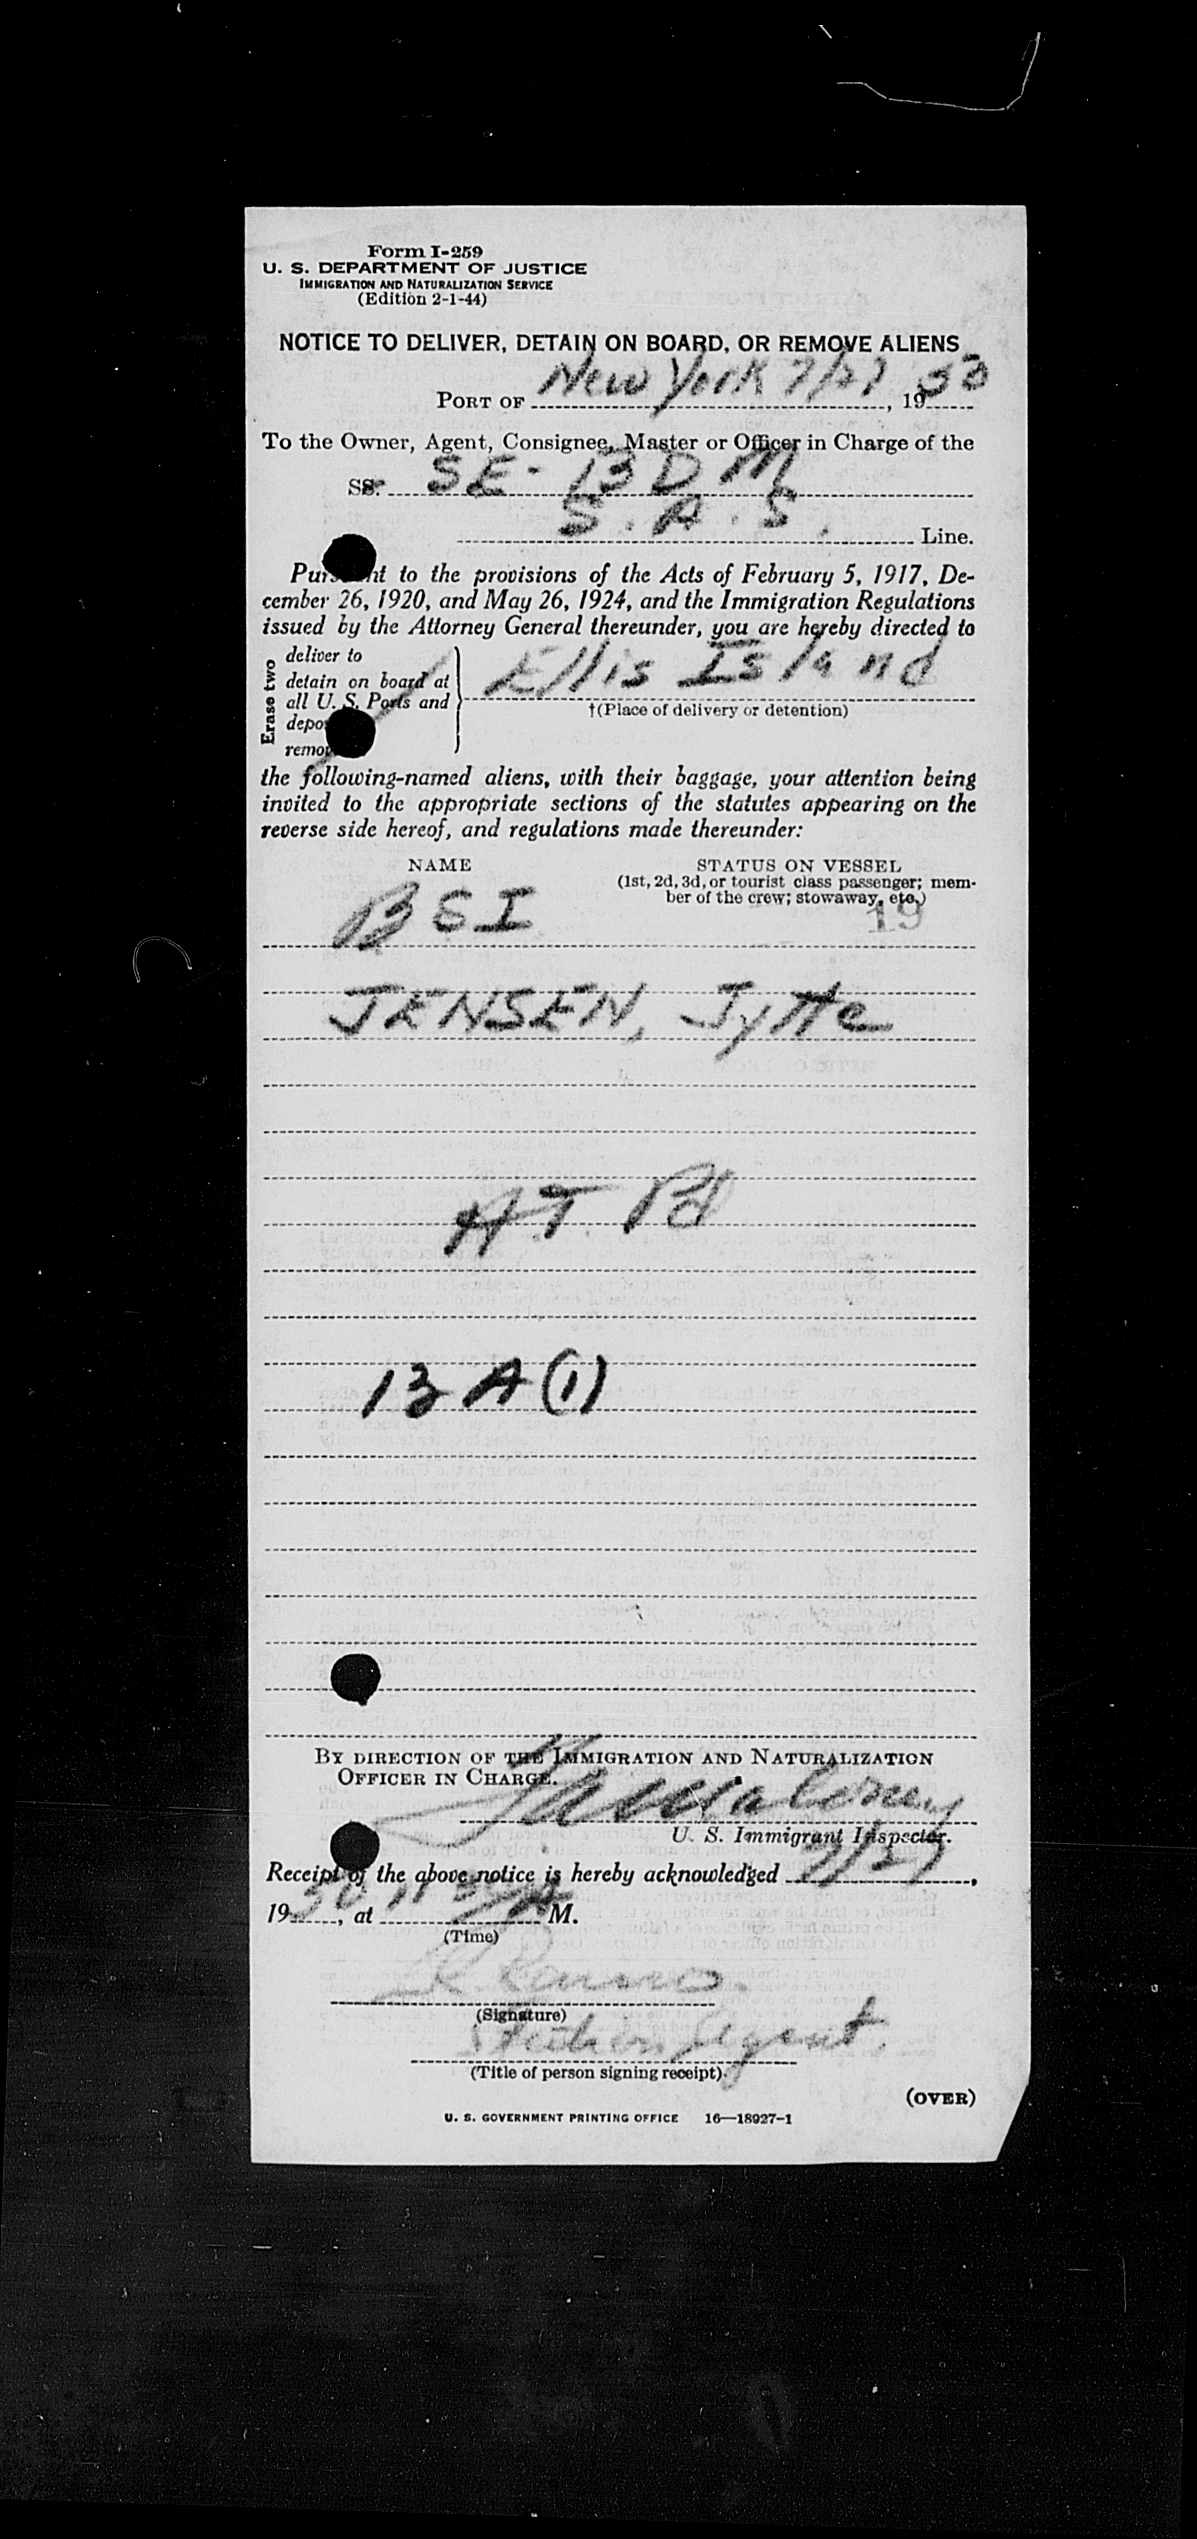 Form I-259
U. S. DEPARTMENT OF JUSTICE
IMMIGRATION AND NATURALIZATION SERVICE
(Edition 2-1-44)
NOTICE TO DELIVER, DETAIN ON BOARD, OR REMOVE ALIENS
PORT OF New York 7/27, 1950
To the Owner, Agent, Consignee, Master or Officer in Charge of the
SS. SE-BDM
S.A.S. Line.
Pursuant to the provisions of the Acts of February 5, 1917, De-
cember 26, 1920, and May 26, 1924, and the Immigration Regulations
issued by the Attorney General thereunder, you are hereby directed to
Erase two
deliver to
detain on board at
all U. S. Ports and
Ellis Island
†(Place of delivery or detention)
the following-named aliens, with their baggage, your attention being
invited to the appropriate sections of the statutes appearing on the
reverse side hereof, and regulations made thereunder:
NAME STATUS ON VESSEL
(1st, 2d, 3d, or tourist class passenger; mem-
ber of the crew; stowaway, etc.)
19
BSI
JENSEN, Jytte
HT Pd
13 A (1)
BY DIRECTION OF THE IMMIGRATION AND NATURALIZATION
OFFICER IN CHARGE.
U. S. Immigrant Inspector.
Receipt of the above notice is hereby acknowledged 7/27,
1950, at M.
(Time)
(Signature)
Station Agent.
(Title of person signing receipt).
(OVER)
U. S. GOVERNMENT PRINTING OFFICE 16—18927-1